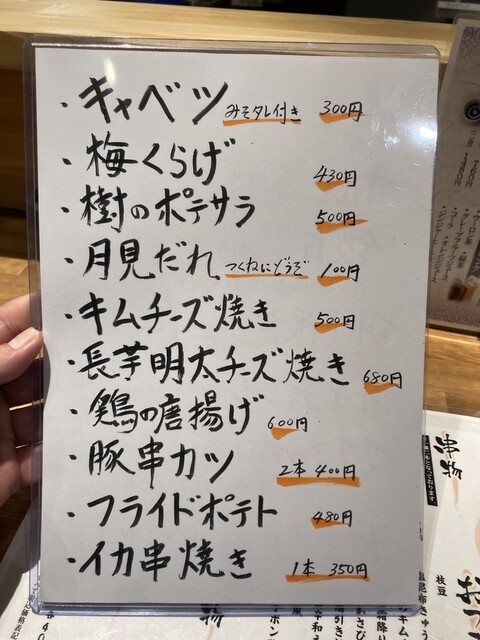 ・キャベツ みそタレ付き 300円
・梅くらげ 430円
・樹のポテサラ 500円
・月見だれ つくねにどうぞ 100円
・キムチーズ焼き 500円
・長芋明太チーズ焼き 680円
・鶏の唐揚げ 600円
・豚串カツ 2本 400円
・フライドポテト 480円
・イカ串焼き 1本 350円
串物
枝豆